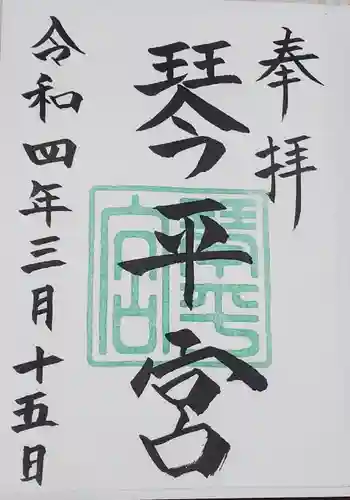 奉拝
琴平宮
令和四年三月十五日